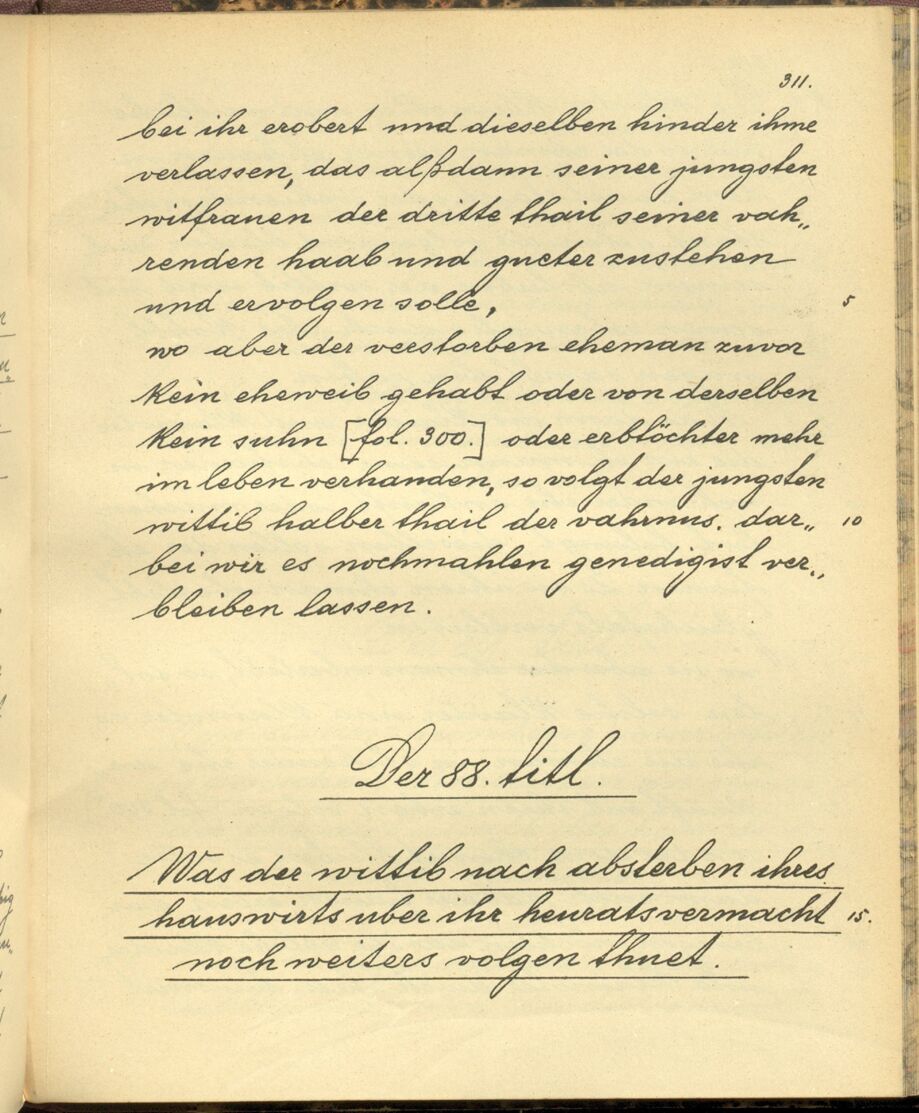 311.
bei ihr erobert und dieselben hinder ihme
verlassen, das alßdann seiner jungsten
witfrauen der dritte thail seiner vah„
renden haab und gueter zustehen
und ervolgen solle, 5
wo aber der verstorben eheman zuvor
kein eheweib gehabt oder von derselben
kein suhn [fol. 300.] oder erbtöchter mehr
im leben verhanden, so volgt der jungsten
wittib halber thail der vahrnus. dar„ 10
bei wir es nochmahlen genedigist ver„
bleiben lassen.
Der 88. titl.
Was der wittib nach absterben ihres
hauswirts uber ihr heuratsvermacht 15.
noch weiters volgen thuet.